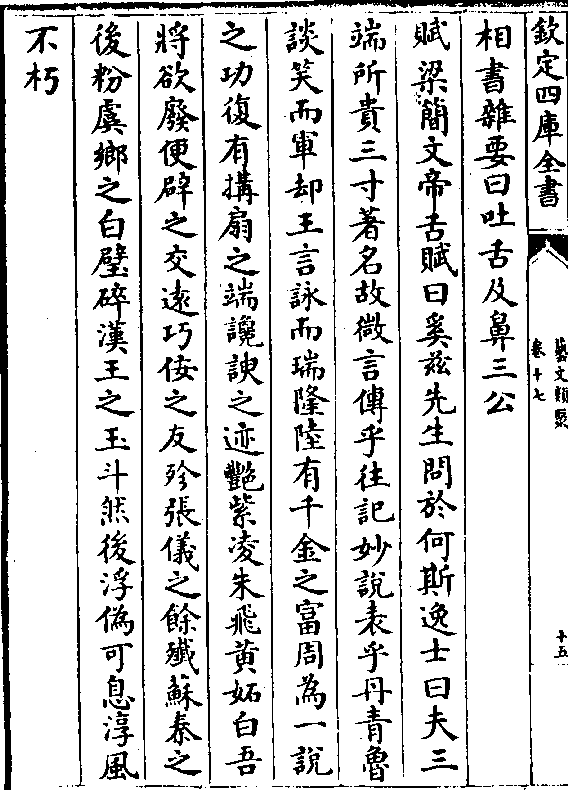 欽定四庫全書
藝文類聚
卷十七
十五
相書雜要曰吐舌及鼻三公
賦梁簡文帝舌賦曰奚茲先生問於何斯逸士曰夫三
端所貴三寸著名故微言傳乎往記妙說表乎丹青魯
談笑而軍却王言詠而瑞隆陸有千金之富周為一說
之功復有搆扇之端讒諛之迹艷紫凌朱飛黃妬白吾
將欲廢便辟之交遠巧佞之友殄張儀之餘殱蘇秦之
後粉虞卿之白璧碎漢王之玉斗然後浮偽可息淳風
不朽